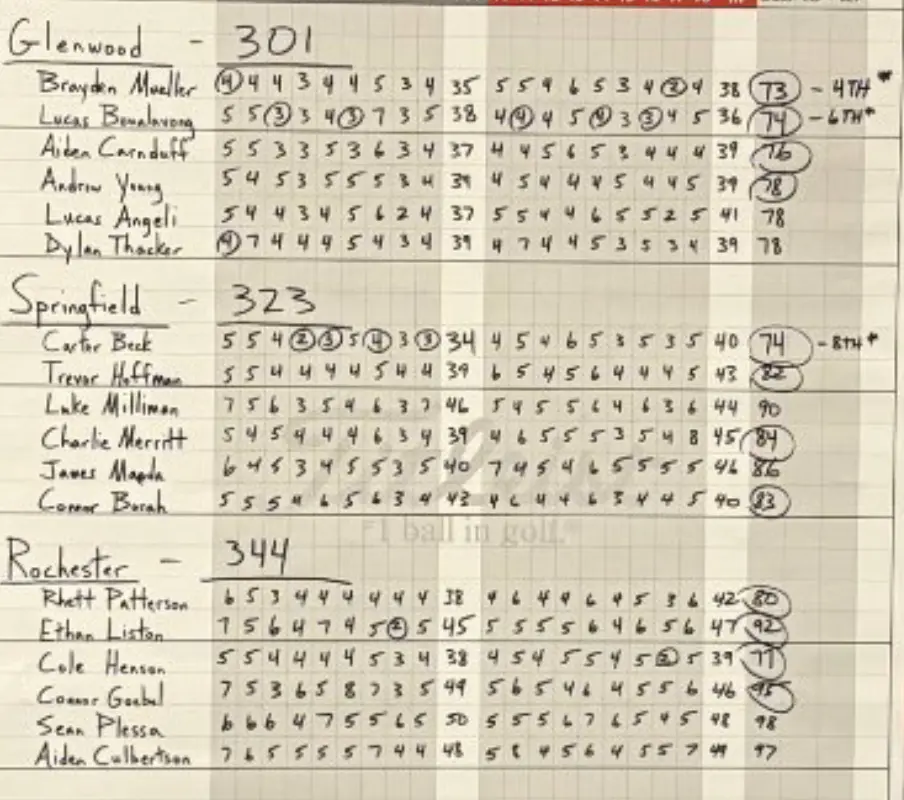 Glenwood - 301
Brayden Mueller 4 4 4 3 4 4 5 3 4 35 5 5 4 6 5 3 4 2 4 38 73 - 4TH*
Lucas 5 5 3 3 4 3 7 3 5 38 4 4 4 5 4 3 3 4 5 36 74 - 6TH*
Aiden Carnduff 5 5 3 3 5 3 6 3 4 37 4 4 5 6 5 3 4 4 4 39 76
Andrew Young 5 4 5 3 5 5 5 3 4 39 4 5 4 4 4 5 4 4 5 39 78
Lucas Angeli 5 4 4 3 4 5 6 2 4 37 5 5 4 4 6 5 5 2 5 41 78
Dylan Thacker 4 7 4 4 4 5 4 3 4 39 4 7 4 4 5 3 5 3 4 39 78
Springfield - 323
Carter Beck 5 5 4 2 3 5 4 3 3 34 4 5 4 6 5 3 5 3 5 40 74 - 8TH*
Trevor Hoffman 5 5 4 4 4 4 5 4 4 39 6 5 4 5 6 4 4 4 5 43 82
Luke Milliman 7 5 6 3 5 4 6 3 7 46 5 4 5 5 6 4 6 3 6 44 90
Charlie Merritt 5 4 5 4 4 4 6 3 4 39 4 6 5 5 5 3 5 4 8 45 84
James Mapda 6 4 5 3 4 5 5 3 5 40 7 4 5 4 6 5 5 5 5 46 86
Connor Borah 5 5 5 4 6 5 6 3 4 43 4 6 4 4 6 3 4 4 5 40 83
"1 ball in golf."
Rochester - 344
Rhett Patterson 6 5 3 4 4 4 4 4 4 38 4 6 4 4 6 4 5 3 6 42 80
Ethan Liston 7 5 6 4 7 4 5 2 5 45 5 5 5 5 6 4 6 5 6 47 92
Cole Henson 5 5 4 4 4 4 5 3 4 38 4 5 4 5 5 4 5 2 5 39 77
Connor Goebel 7 5 3 6 5 8 7 3 5 49 5 6 5 4 6 4 5 5 6 46 95
Sean Plessa 6 6 6 4 7 5 5 6 5 50 5 5 5 6 7 6 5 4 5 48 98
Aiden Culbertson 7 6 5 5 5 5 7 4 4 48 5 8 4 5 6 4 5 5 7 49 97